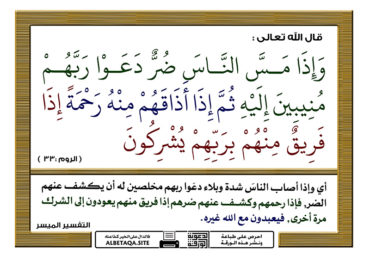 قال الله تعالى :
وَإِذَا مَسَّ النَّاسَ ضُرٌّ دَعَوْا رَبَّهُمْ
مُنِيبِينَ إِلَيْهِ ثُمَّ إِذَا أَذَاقَهُمْ مِنْهُ رَحْمَةً إِذَا
فَرِيقٌ مِنْهُمْ بِرَبِّهِمْ يُشْرِكُونَ
( الروم :٣٣ )
أي وإذا أصاب الناسَ شدة وبلاء دعَوا ربهم مخلصين له أن يكشف عنهم
الضر، فإذا رحمهم وكشف عنهم ضرهم إذا فريق منهم يعودون إلى الشرك
مرة أخرى، فيعبدون مع الله غيره.
التفسير الميسر
احرص على طباعة
ونشر هذه الورقة
فالدال على الخير كفاعله
ALBETAQA.SITE